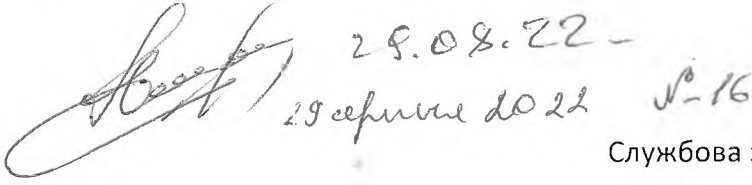 29.08.22-
29 серпня 2022 №-16
Службова з